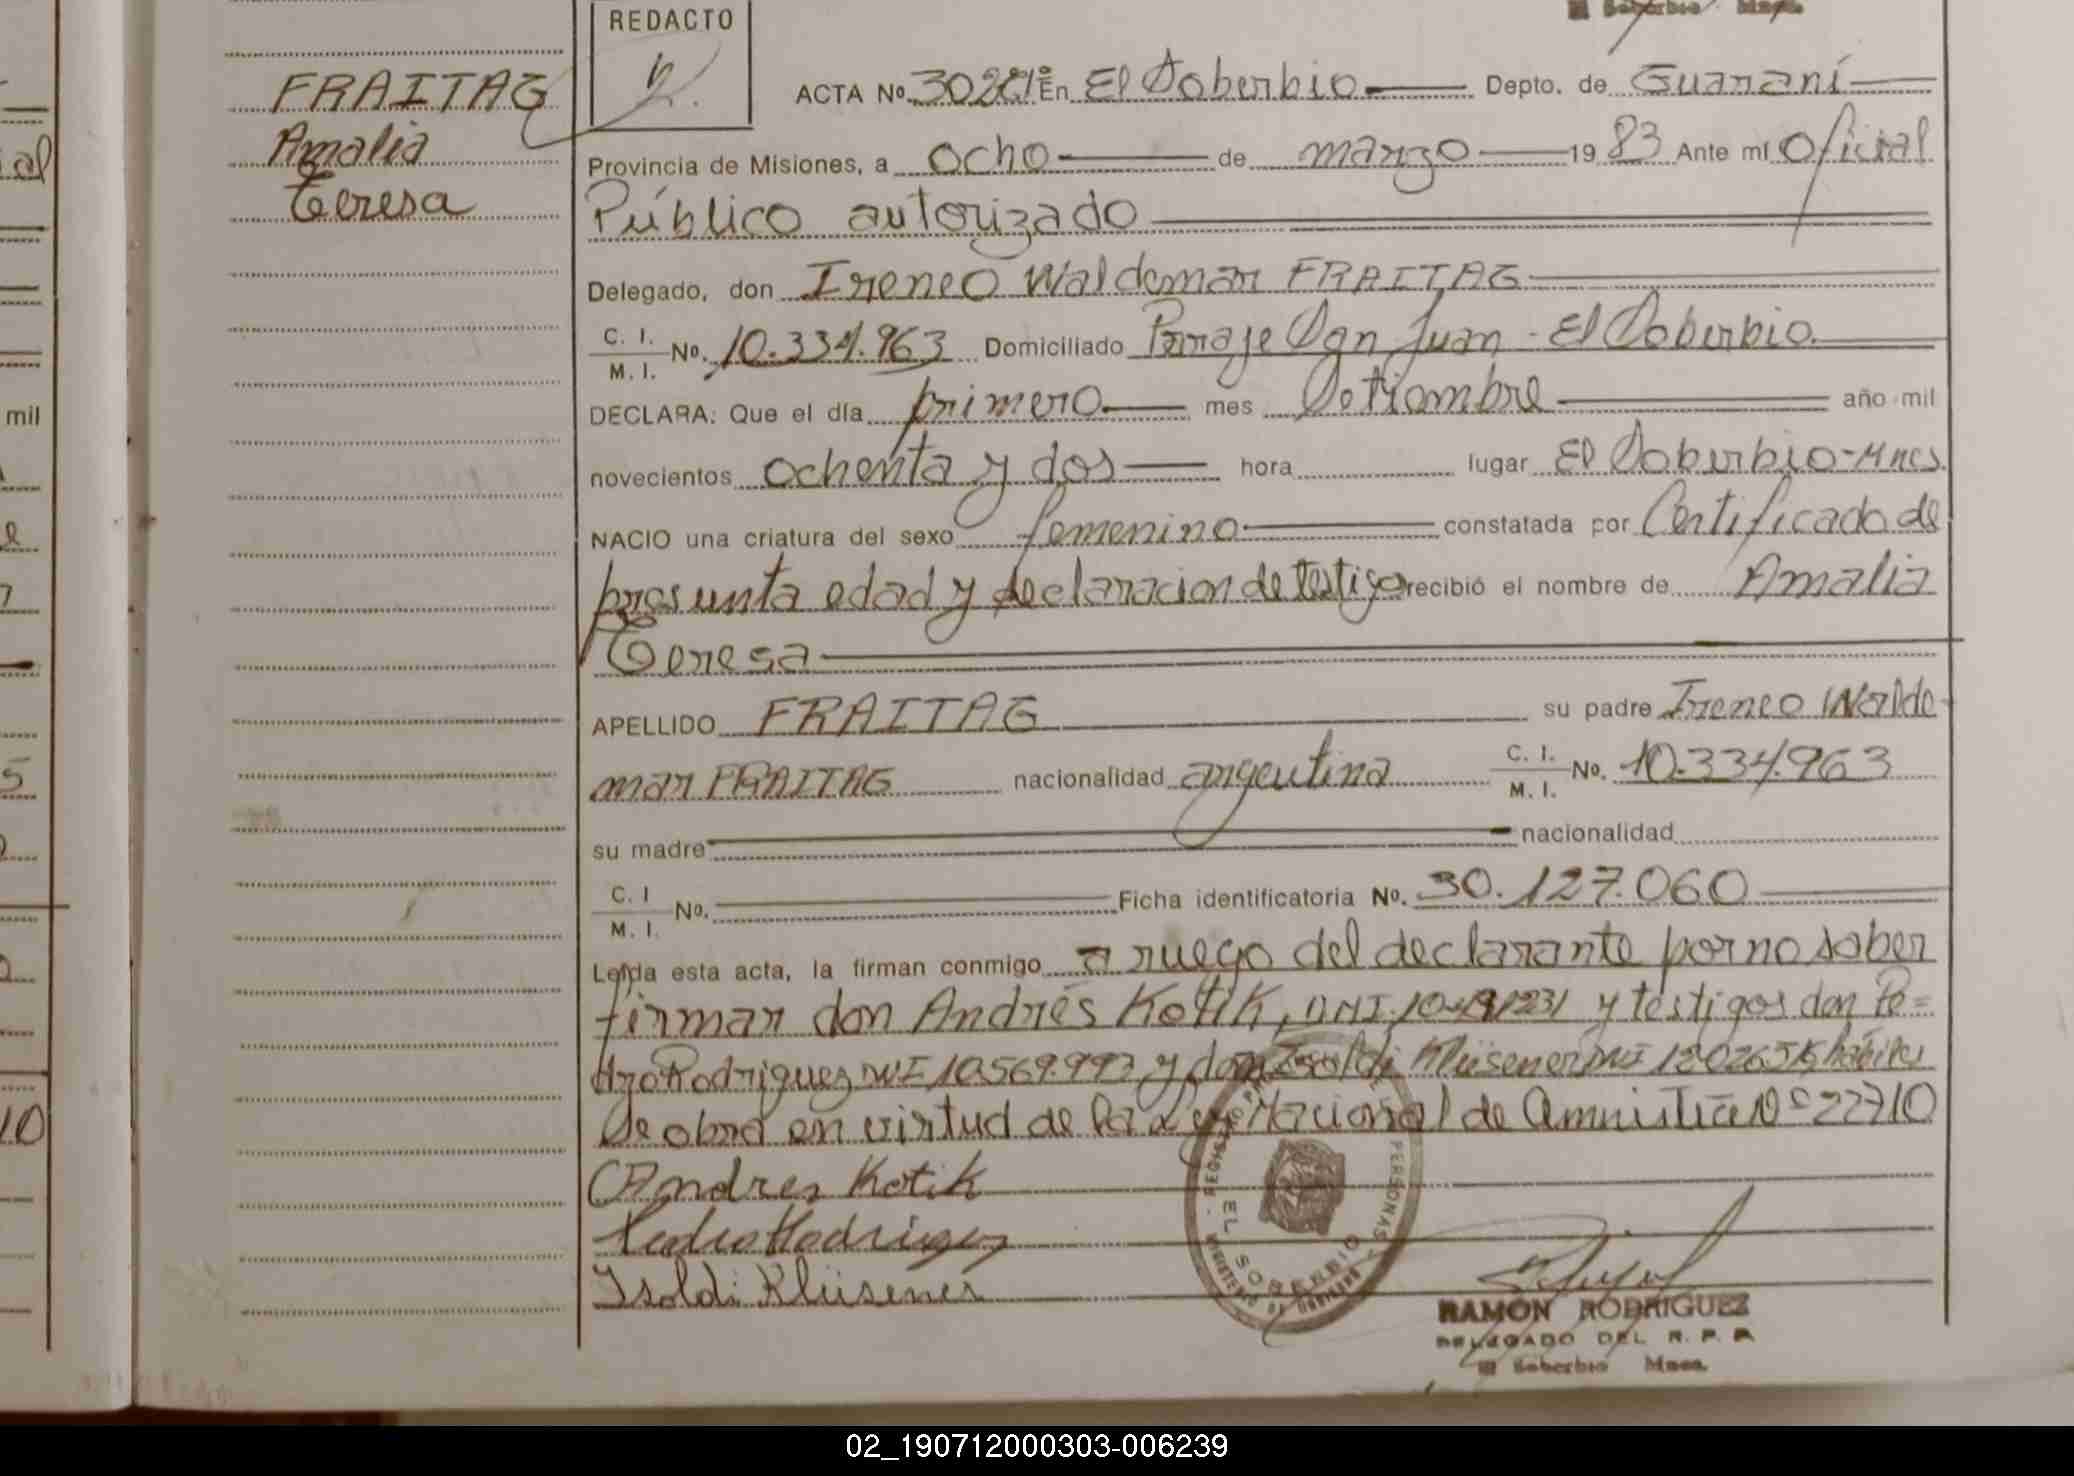 REDACTO
FRAITAG
Amalia
Teresa
ACTA Nº 302 En El Soberbio Depto. de Guaraní
Provincia de Misiones, a ocho de marzo 1983 Ante mí Oficial
Público autorizado
Delegado, don Ireneo Waldemar FRAITAG
C. I.
M. I.
Nº. 10.334.963 Domiciliado Paraje San Juan - El Soberbio
DECLARA: Que el día primero mes Setiembre año mil
novecientos ochenta y dos hora lugar El Soberbio-Mnes.
NACIO una criatura del sexo femenino constatada por Certificado de
presunta edad y declaracion de testigo recibió el nombre de Amalia
Teresa
APELLIDO FRAITAG su padre Ireneo Walde-
mar FRAITAG nacionalidad argentina C. I. M. I. Nº. 10.334.963
su madre nacionalidad
C. I M. I. Nº. Ficha identificatoria Nº. 30.127.060
Leída esta acta, la firman conmigo a ruego del declarante por no saber
firmar don Andrés Kotik, DNI. y testigos don Pe=
dro Rodriguez DNI 10.569.993 y don Isoldi Klüsener DNI
Se obra en virtud de la Ley Nacional de Amnistía Nº 22710
Andres Kotik
Pedro Rodriguez
Isoldi Klüsener
EL SOBERBIO
RAMON RODRIGUEZ
DELEGADO DEL R. P. P.
El Soberbio Mnes.
mil
10
02_190712000303-006239